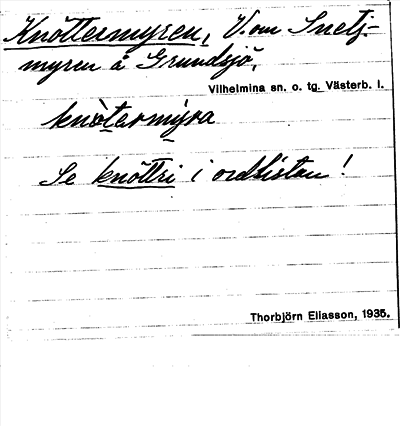 Knöttermyren, V. om Snetj-
myren å Grundsjö,
Vilhelmina sn. o. tg. Västerb. l.
knòtermyra
Se knöttri i ordlistan!
Thorbjörn Eliasson, 1935.